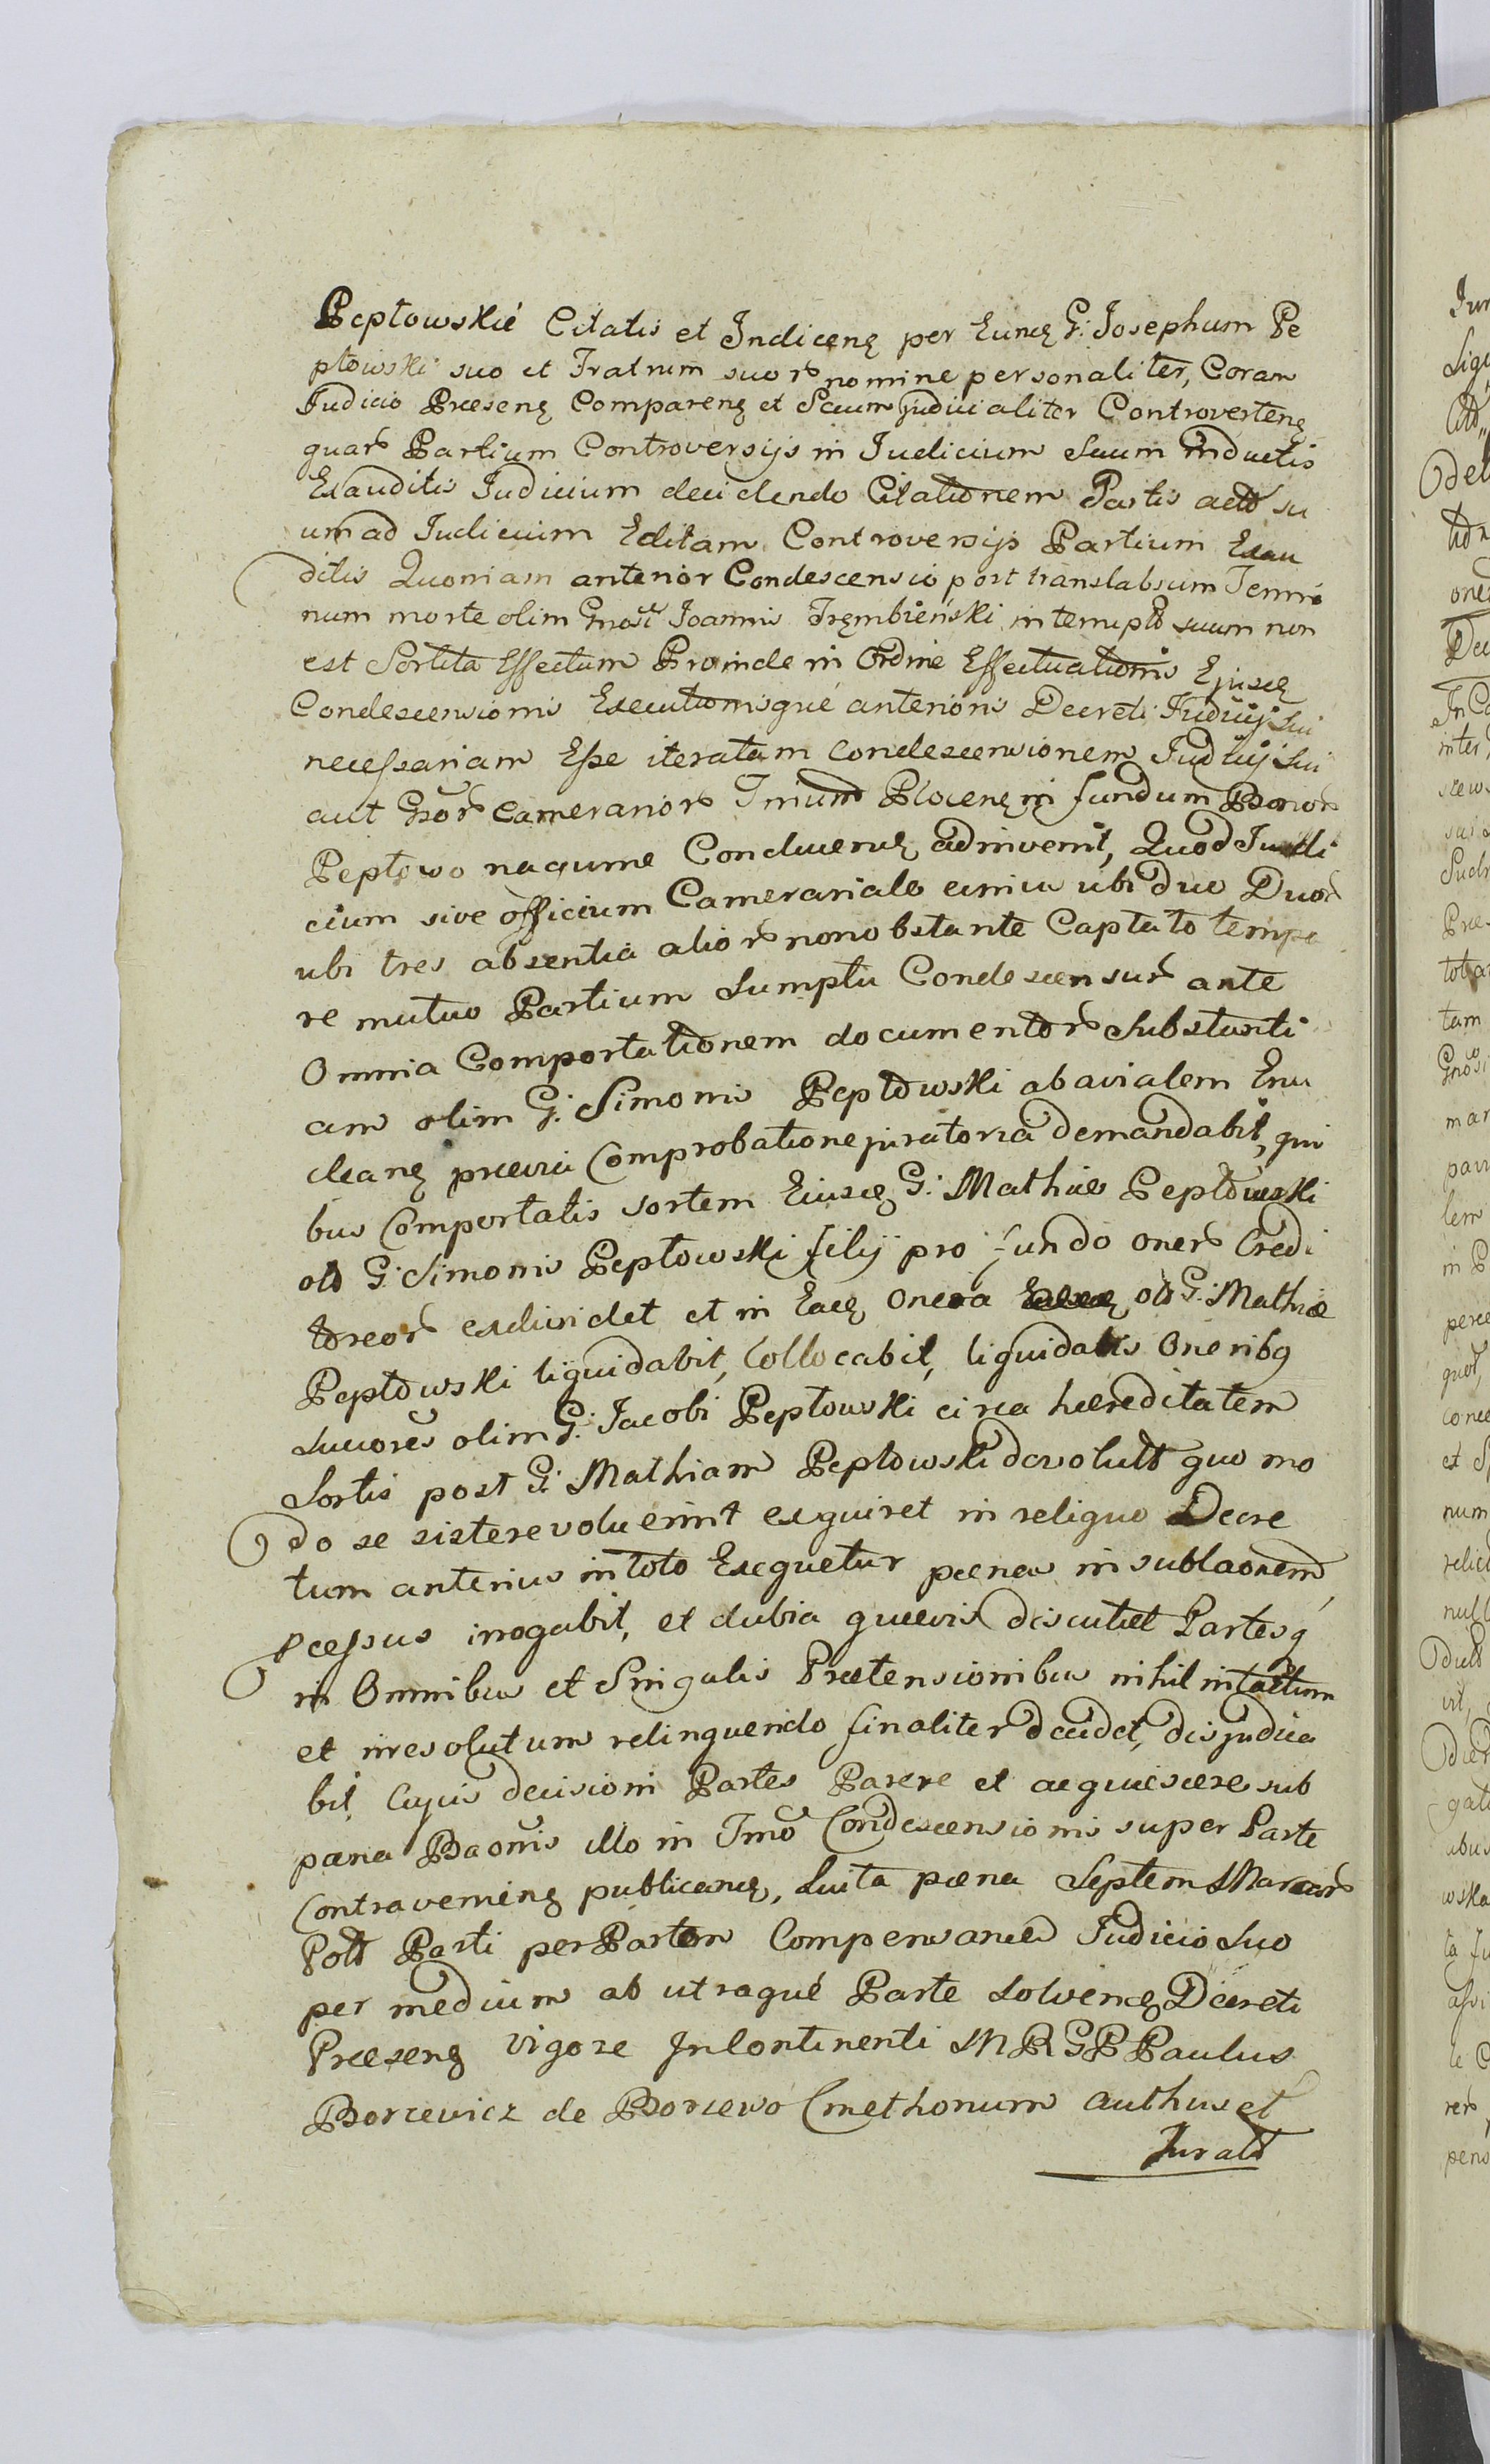 Peptowskié Citatis et Indicenę per Euncę G: Josephum Pe
ptowski suo et Fratrum suor nomine personaliter, Coram
Judicio Præsenę Comparenę et Secum judicialiter Controvertenę
quar Partium Controversijs in Judicium Suum inductis
Exauditis Judicium decidendo Citationem Partis acto su
um ad Judicium Editam Controversijs Partium Exau
ditis Quoniam anterior Condescensio post translabsum Termi
num morte olim Gnosi Joannis Trębiński intempto suum non
est Sortita Effectum Proinde in Ordine Effectuationis Ejuscę
Condescensionis Executionisqué anterioris Decreti Judicij Sui
necessariam Esse iteratam condescensionem Judicij Sui
aut Gsor Camerarior Trium Plocenę in fundum Bonor
Peptowo nagurne Conducenę adinvenit, Quod Judi
cium sive officium Camerariale unicu ubi duo Duor
ubi tres absentia alior nonobstante Captato tempo
re mutuo Partium Sumptu Condescensur ante
Omnia Comportationem documentor Substanti
am olim G: Simonis Peptowski abavialem Enu
cleanę prævia Comprobatione juratoria demandabit, qui
bus Comportatis sortem Eiuscę G: Mathiæ Peptowski
olo G: Simonis Peptowski filij pro fundo oner Credi
toreor exdividet et in Eacę Onera olo G: Mathiæ
Peptowski liquidabit, Collocabit, liquidatis Oneribę
Succores olim G: Jacobi Peptowski circa hæreditatem
Sortis post G: Mathiam Peptowski devolut quo mo
do se sistere voluerint exquiret in reliquo Decre
tum anterius in toto Exequetur pænas in sublaonem
Pcessus irrogabit, et dubia quævis discutiet Partesq
in Omnibus et Singulis Prætensionibus nihil intactum
et irresolutum relinquendo finaliter decidet, disjudica
bit Cujus decisioni Partes Parere et acquiescere sub
pæna Baonis illo in Tmo Condescensionis super Parte
Contravenienę publicancę, Luita pæna Septem Marcar
Polo Parti per Partem Compensancę Judicio Suo
per medium ab utraqué Parte Solvencę Decreti
Præsenę Vigore In Continenti MRGP Paulus
Borcevicz de Borcewo Cmethonum authus et
Jurato